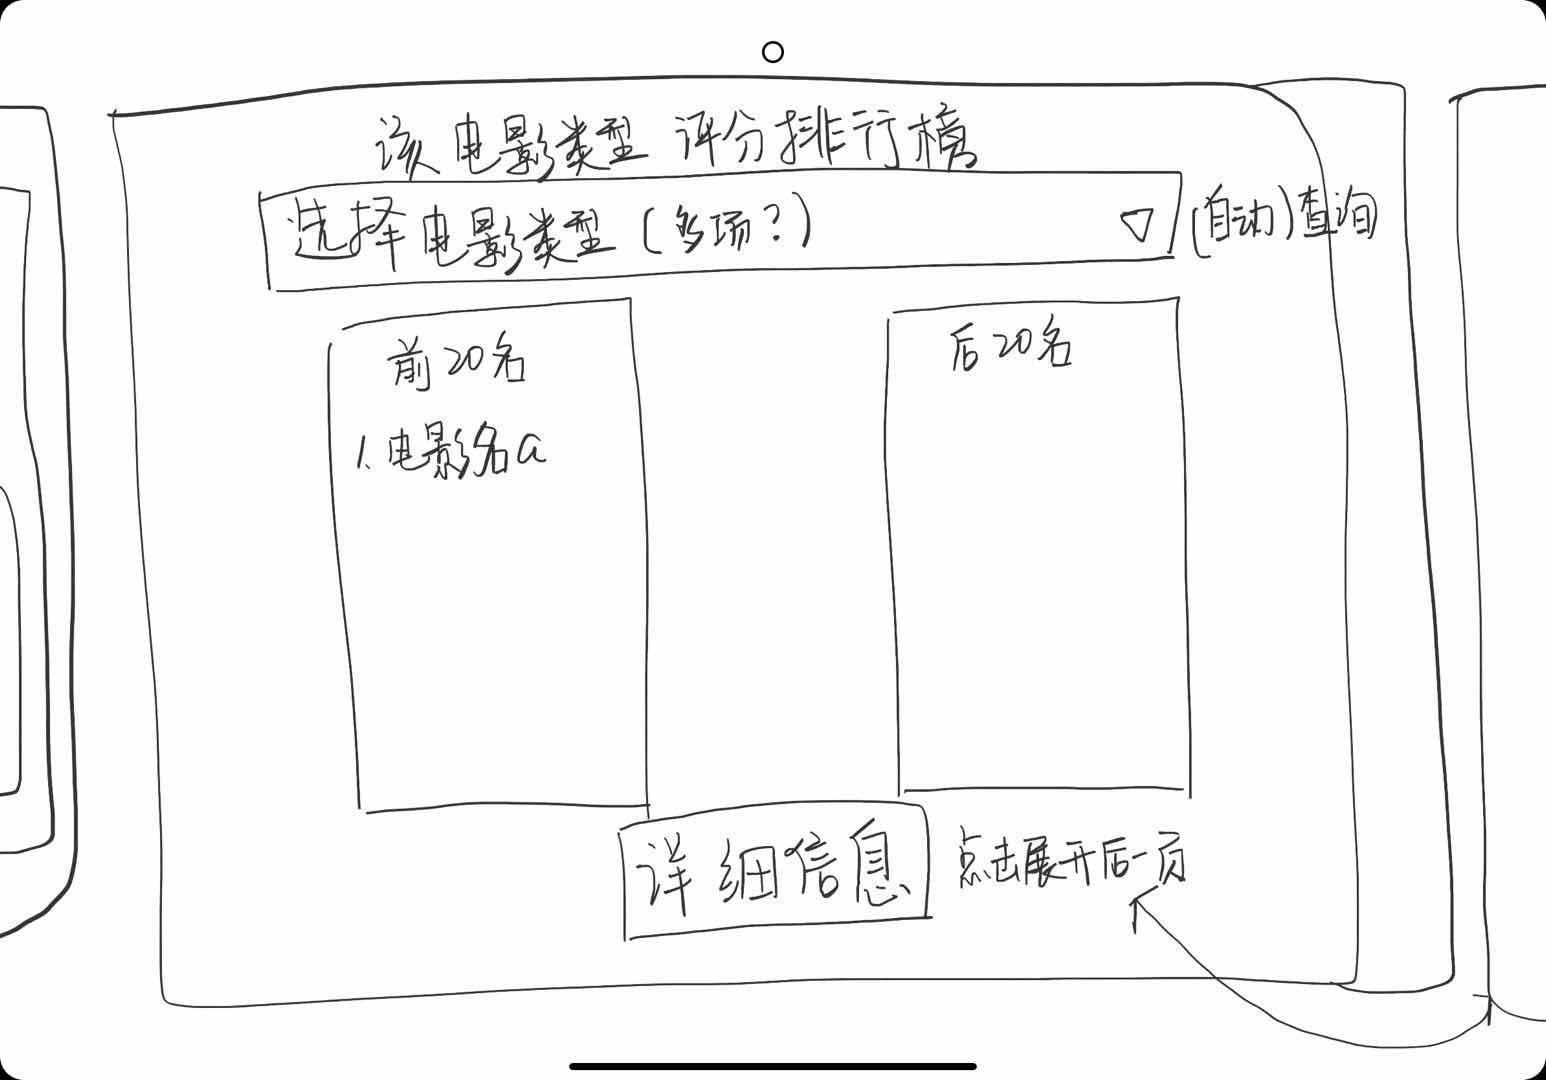 该电影类型 评分排行榜
选择电影类型(多场?)
(自动)查询
前20名
1.电影名a
后20名
详细信息
点击展开后一页